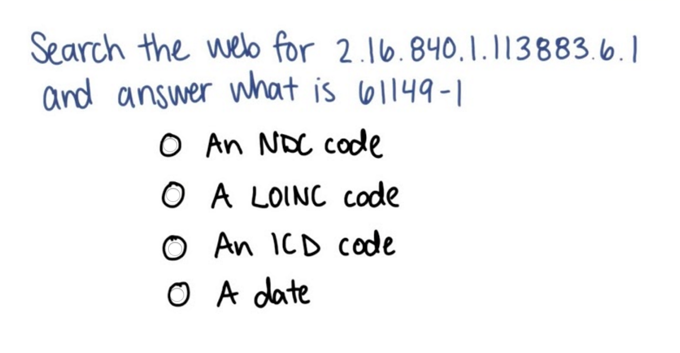 Search the web for 2.16.840.1.113883.6.1
and answer what is 61149-1
An NDC code
A LOINC code
An ICD code
A date